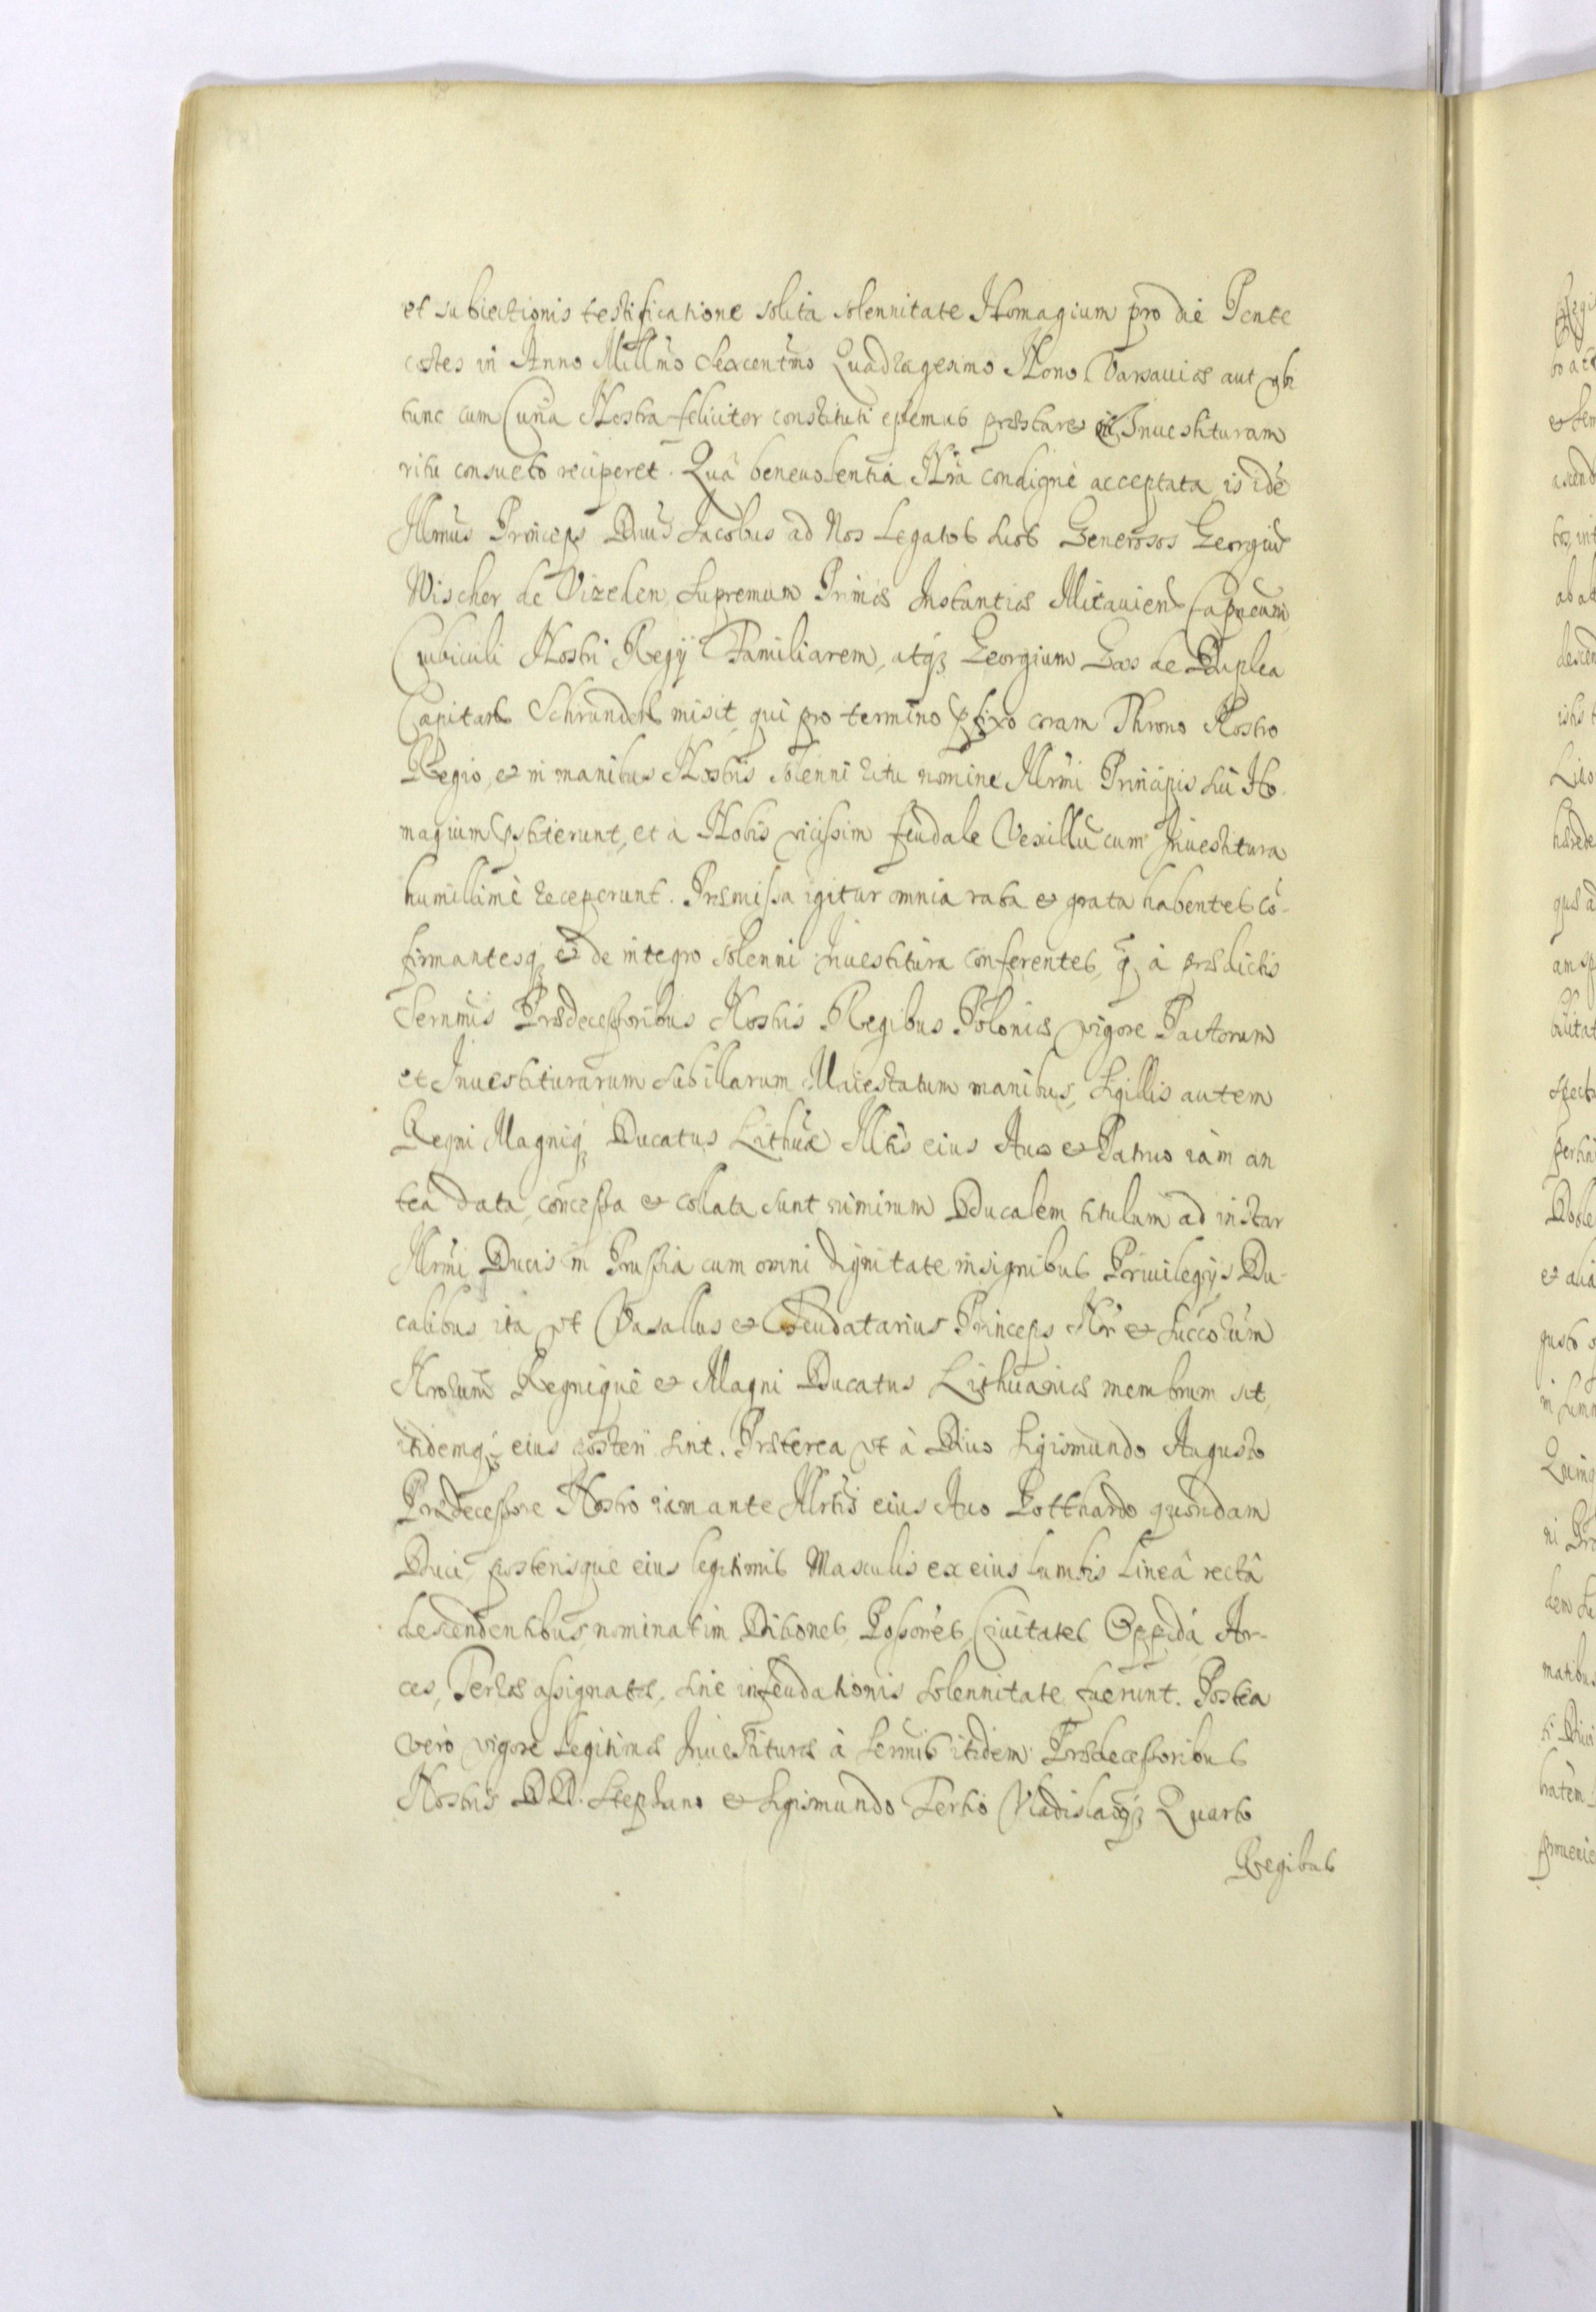 et subiectionis testificatione solita solennitate Homagium pro die Pente
costes in Anno Millmo Sexcentmo Quadragesimo Nono Varsauiæ aut ubi
tunc cum Curia Nostra feliciter constituti essemus præstaret et Inuestituram
ritu consueto reciperet. Quâ beneuolentiâ Nrâ condignè acceptata is idē
Illmus Princeps Dnus Iacobus ad Nos Legatos suos Generosos Georgiū
Vischer de Vizelen, supremum Primæ Instantiæ Mitauiens Capneum,
Cubiculi Nostri Regij Familiarem, atq3 Georgium Gos de Duplea
Capitan Schrunden misit, qui pro termino pfixo coram Throno Nostro
Regio, et in manibus Nostris solenni ritu nomine Illrmi Principis sui Ho
magium pstiterunt, et à Nobis vicissim feudale Vexillū cum Inuestitura
humillimè receperunt. Præmissa igitur omnia rata et grata habentes cō-
firmantesq3 et de integro solenni inuestitura conferentes, q à prædictis
Sernmis Prædecessoribus Nostris Regibus Poloniæ vigore Pactorum
et Inuestiturarum sub illarum Maiestatum manibus, Sigillis autem
Regni Magniq3 Ducatus Lithuæ Illtis eius Auo et Patruo iàm an
tea data, concessa et collata sunt nimirum Ducalem titulum ad instar
Illrmi Ducis in Prussia cum omni dignitate insignibus Priuilegijs Du-
calibus ita vt Vasallus et Feudatarius Princeps Nr et Succorum
Nrorum Regnique et Magni Ducatus Lithuaniæ membrum sit,
itidemq3 eius posteri sint. Præterea vt à Diuo Sigismundo Augusto
Prædecessore Nostro iam ante Illrtis eius Auo Gotthardo quondam
Duci posterisque eius legitimis Masculis ex eius lumbis Lineâ rectâ
descendentibus, nominatim Ditiones, Possones, Ciuitates Oppida, Ar-
ces, Terræ assignatæ, sine infeudationis solennitate fuerunt. Postea
verò vigore Legitimæ Inuestituræ à Sermis itidem Prædecessoribus
Nostris DD. Stephano et Sigismundo Tertio Vladislaoq3 Quarto
Regibus